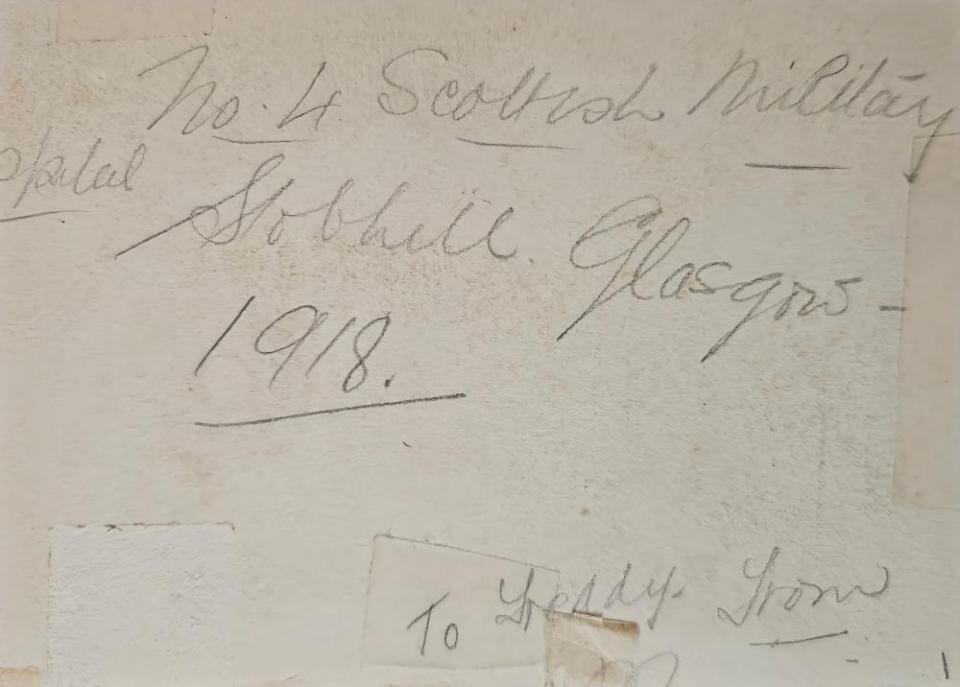 No. 4 Scottish Military
Stobhill. Glasgow -
1918.
To Freddy From